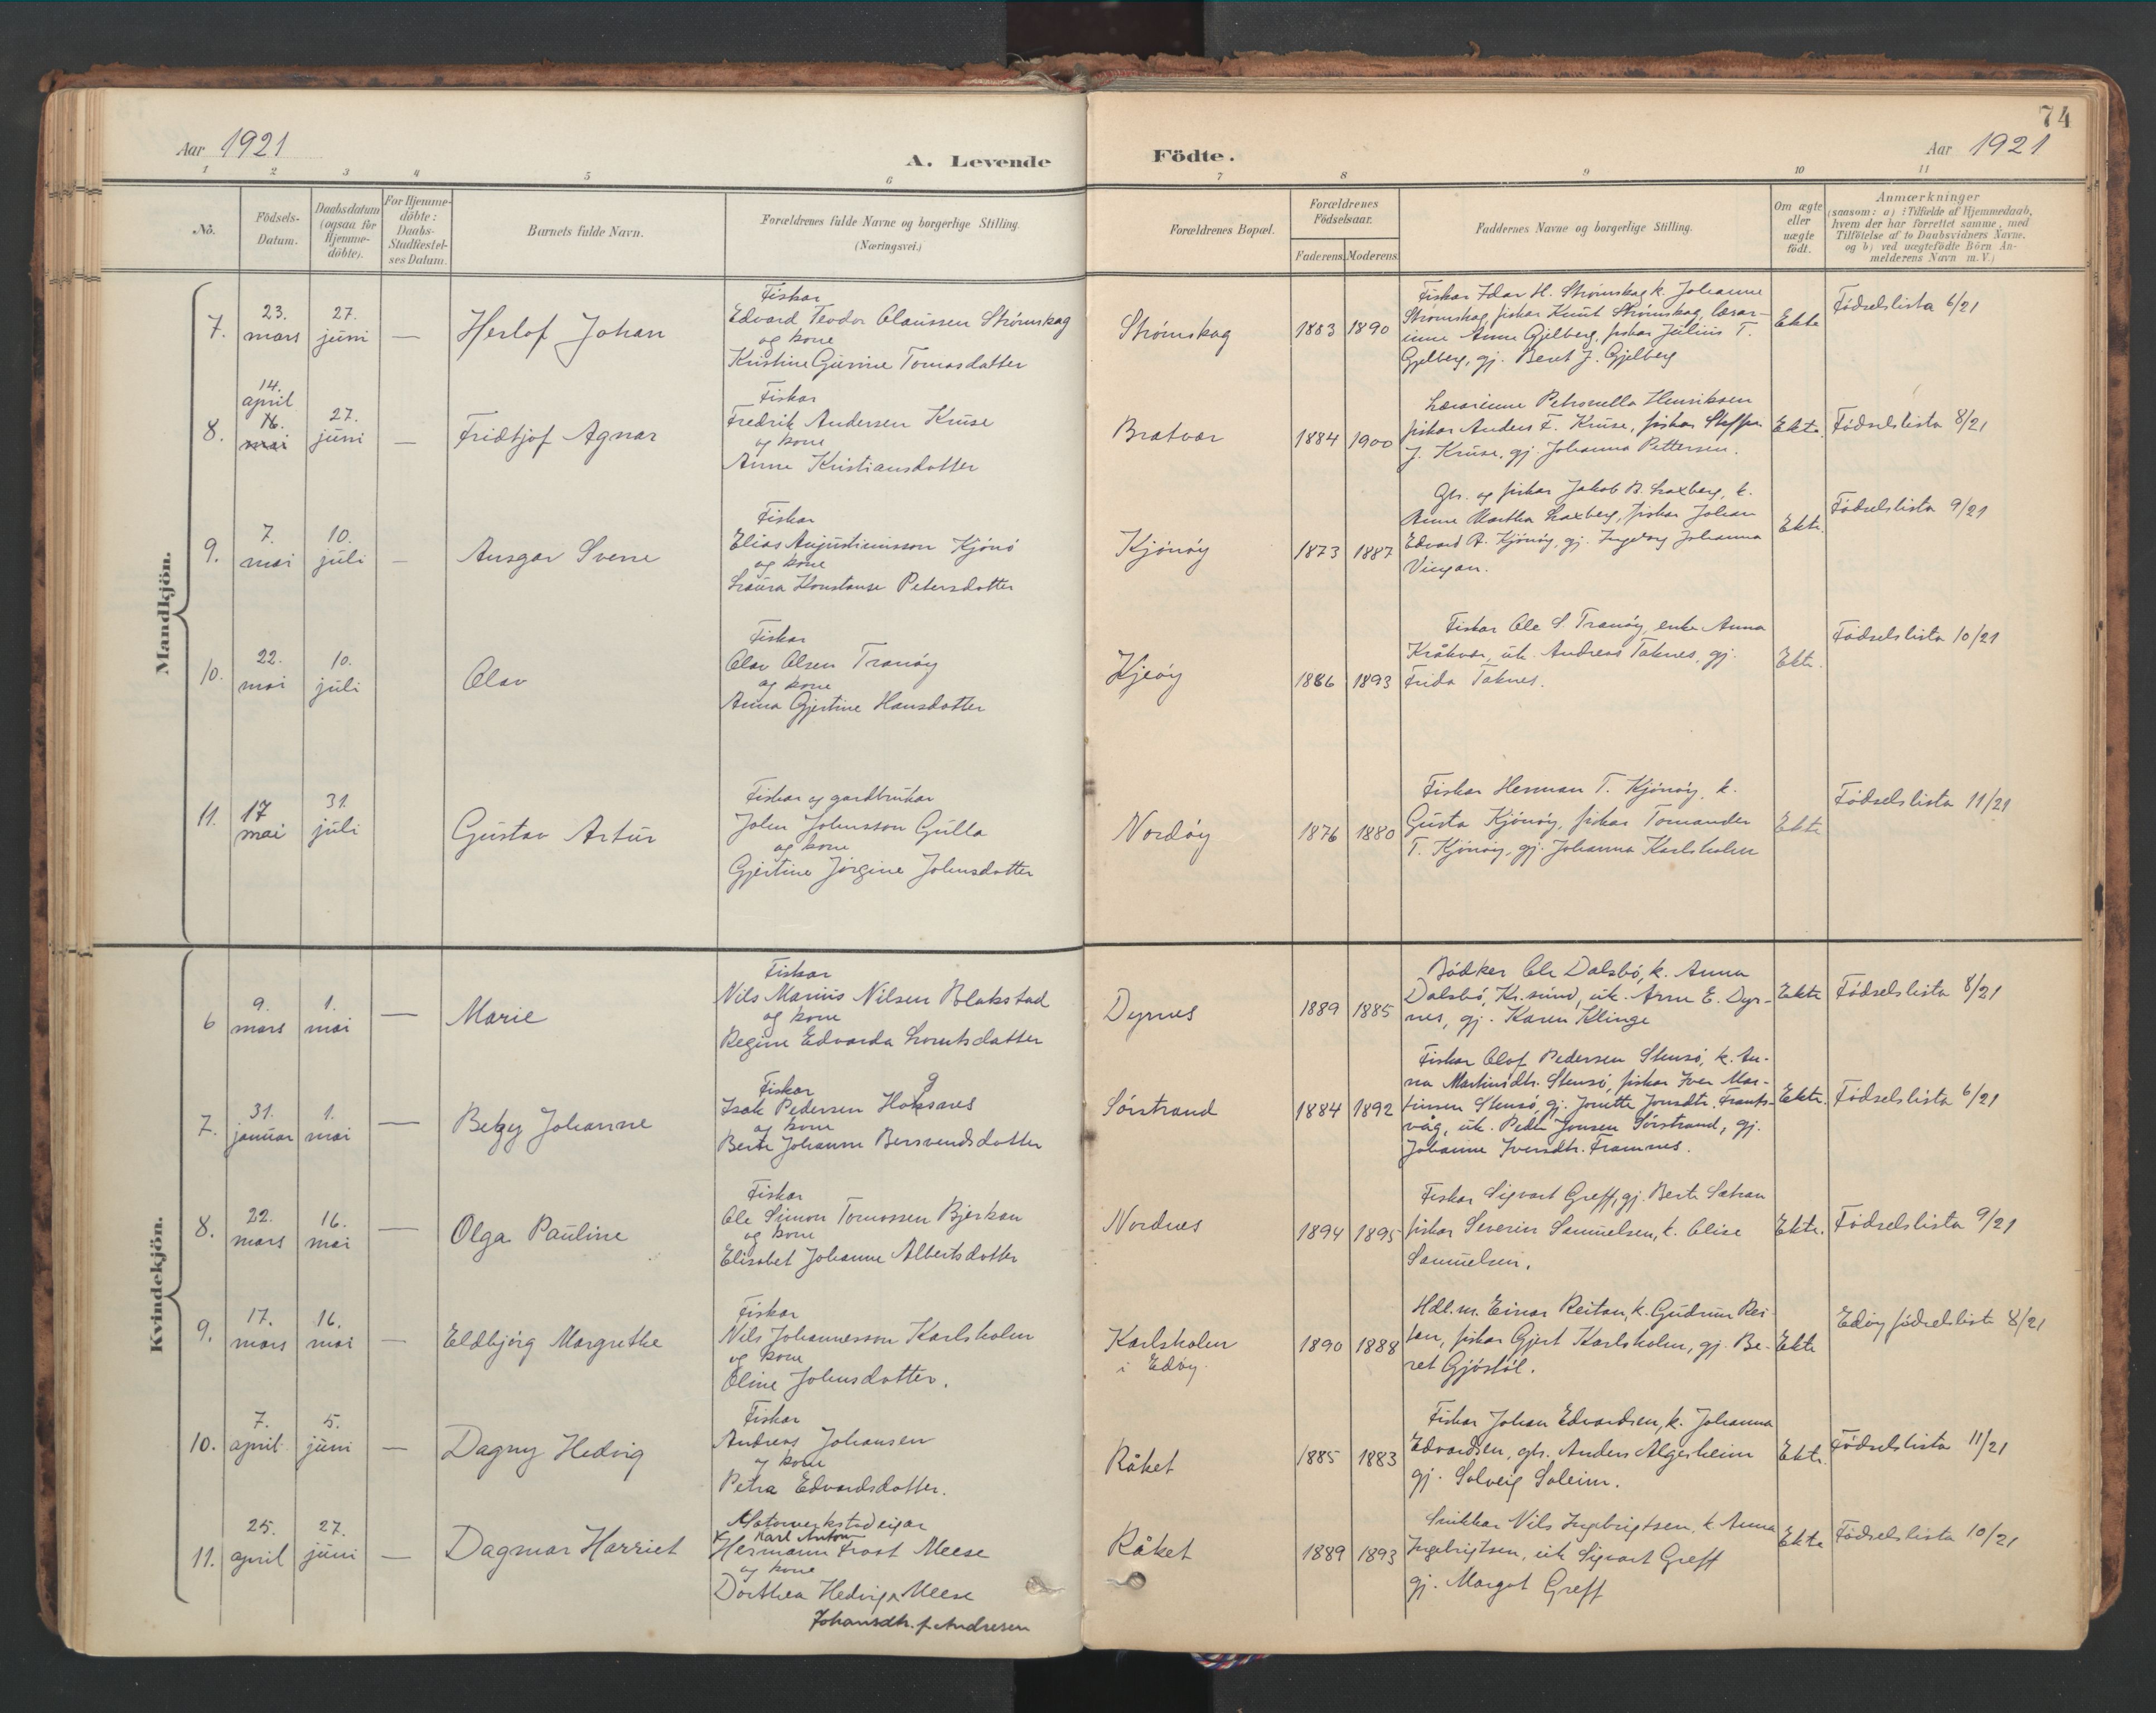 74
Aar 1921
A. Levende
Födte.
Aar 1921
1 2 3 4 5 6 7 8 9 10 11
No.
Födsels-
Datum.
Daabsdatum
(ogsaa for
Hjemme-
döbte).
For Hjemme-
döbte:
Daabs-
Stadfæstel-
ses Datum.
Barnets fulde Navn.
Forældrenes fulde Navne og borgerlige Stilling.
(Næringsvei.)
Forældrenes Bopæl.
Forældrenes
Födselsaar.
Faderens. Moderens.
Faddernes Navne og borgerlige Stilling.
Om ægte
eller
uægte
födt.
Anmærkninger
(saasom: a) i Tilfælde af Hjemmedaab,
hvem der har forrettet samme, med
Tilföielse af to Daabsvidners Navne,
og b) ved uægtefödte Börn An-
melderens Navn m. V.)
Mandkjön.
7.
23.
mars
27.
juni
—
Herlof Johan
Fiskar
Edvard Teodor Claussen Strömskag
og kone
Kristine Gurine Tomasdatter
Strömskag
1883 1890
Fiskar Idar H. Strömskag, k. Johanne
Strömskag, fiskar Knut Strömskag, lærar-
inne Anne Gjelberg, fiskar Julius T.
Gjelberg, gj. Beret J. Gjelberg
Ekte
Födselslista 6/21
8.
14.
april
16.
mai
27.
juni
—
Fridtjof Agnar
Fiskar
Fredrik Andersen Kruse
og kone
Anne Kristiansdatter
Bratvær
1884 1900
Lærarinne Petronella Henriksen
fiskar Anders F. Kruse, fiskar Steffen
J. Kruse, gj. Johanna Pettersen.
Ekte.
Födselslista 8/21
9.
7.
mai
10.
juli
—
Ansgar Sverre
Fiskar
Elias Augustinusson Kjönö
og kone
Laura Konstanse Petersdotter
Kjönöy
1873 1887
Gbr. og fiskar Jakob B. Laxberg, k.
Anne Martha Laxberg, fiskar Johan
Edvard A. Kjönöy, gj. Ingeborg Johanna
Vingan.
Ekte.
Födselslista 9/21
10.
22.
mai
10.
juli
Olav
Fiskar
Olav Olsen Tranöy
og kone
Anna Gjertine Hansdotter
Kjeöy
1886 1893
Fiskar Ole S. Tranöy, enke Anna
Kråkvær, uk. Andreas Taknes, gj.
Frida Taknes.
Ekte.
Födselslista 10/21
11.
17
mai
31.
juli
Gustav Artur
Fiskar og gardbrukar
John Johnsson Gulla
og kone
Gjertine Jörgine Johnsdotter
Nordöy
1876 1880
Fiskar Herman T. Kjönöy, k.
Gusta Kjönöy, fiskar Tomander
T. Kjönöy, gj. Johanna Karlsholm
Ekte
Födselslista 11/21
Kvindekjön.
6
9.
mars
1.
mai
—
Marie
Fiskar
Nils Marius Nilsen Blakstad
og kone
Regine Edvarda Lorntsdatter
Dyrnes
1889 1885
Bödker Ole Dalsbö, k. Anna
Dalsbö, Kr.sund, uk. Arne E. Dyr-
nes, gj. Karen Klinge
Ekte
Födselslista 8/21
7.
31.
januar
1.
mai
—
Betzy Johanne
Fiskar
Isak Pedersen Hoksnes
g
og kone
Berte Johanne Bersvendsdotter
Sörstrand
1884 1892
Fiskar Olaf Pedersen Stensö, k. An-
na Martinsdtr. Stensö, fiskar Iver Mar-
tinsen Stensö, gj. Jonette Jonsdtr. Frants-
våg, uk. Peder Jonsen Sörstrand, gj.
Johanne Iversdtr. Framnes.
Ekte.
Födselslista 6/21
8.
22.
mars
16.
mai
—
Olga Pauline
Fiskar
Ole Simon Tomassen Bjerkan
og kone
Elisabet Johanne Albertsdotter
Nordnes
1894 1895
Fiskar Sigvart Greff, gj. Berte Sætran
fiskar Severin Samuelsen, k. Olise
Samuelsen.
Ekte.
Födselslista 9/21
9.
17.
mars
16.
mai
—
Eldbjörg Margrethe
Fiskar
Nils Johannesson Karlsholm
og kone
Oline Johnsdotter.
Karlsholm
i Edöy.
1890 1888
Hdl.m. Einar Reitan, k. Gudrun Rei-
tan, fiskar Gjert Karlsholm, gj. Be-
ret Gjöstöl.
Ekte
Edöy födselslista 8/21
10.
7.
april
5.
juni
—
Dagny Hedvig
Fiskar
Andreas Johansen
og kone
Petra Edvardsdotter.
Råket
1885 1883
Fiskar Johan Edvardsen, k. Johanna
Edvardsen, gbr. Anders Algesheim
gj. Solveig Soleim.
Ekte.
Födselslista 11/21
11.
25.
april
27.
juni
—
Dagmar Harriet
Motorverkstadeigar
Karl Anton
Hermann Frost Meese
og kone
Dorthea Hedvig Meese
Johansdtr. f. Andresen
Råket
1889 1893
Snikkar Nils Ingebrigtsen, k. Anna
Ingebrigtsen, uk. Sigvart Greff
gj. Margot Greff
Ekte
Födselslista 10/21